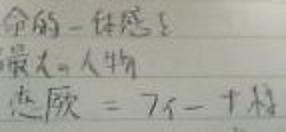 命的一体感を
最大の人物
悲厥 = フィー十様